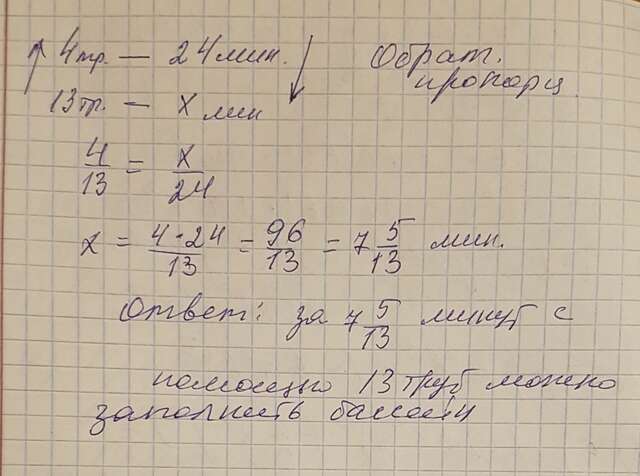 ↑ 4тр. — 24 мин. ↓ Обрат.
пропорц.
13 тр. — x мин
4/13 = x/24
x = 4·24/13 = 96/13 = 7 5/13 мин.
Ответ: за 7 5/13 минут с
помощью 13 труб можно
заполнить бассейн